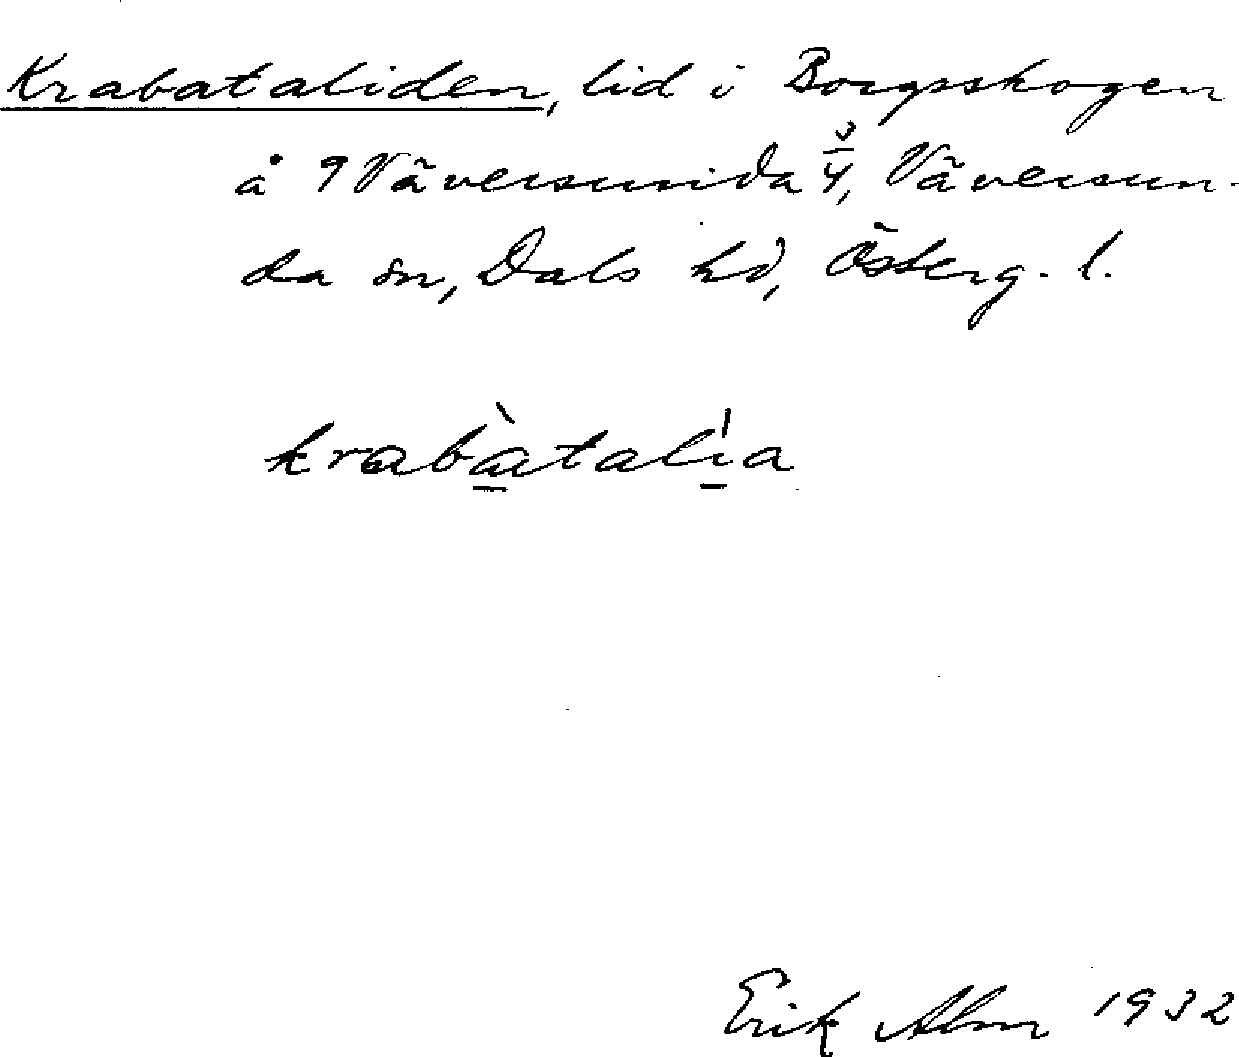 Krabataliden, lid i Borgsskogen
å 9 Väversunda 3/4, Väversun-
da sn, Dals hd, Österg. l.
krabàtalı̍a
Erik Alm 1932